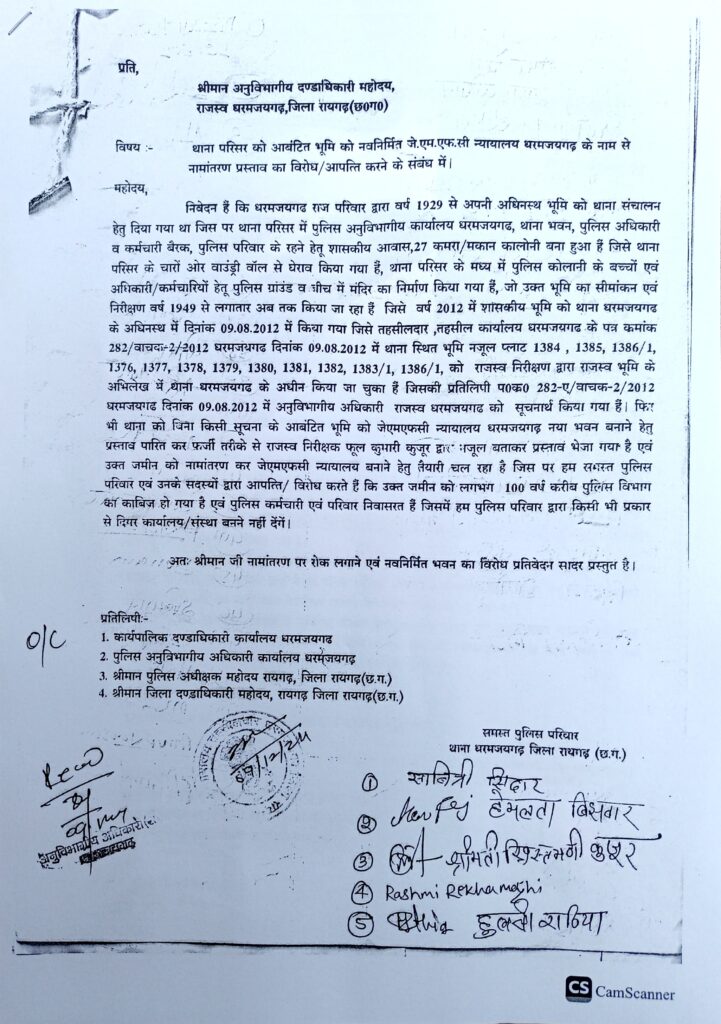 प्रति,
श्रीमान अनुविभागीय दण्डाधिकारी महोदय,
राजस्व धरमजयगढ़,जिला रायगढ़(छ0ग0)
विषय :- थाना परिसर को आबंटित भूमि को नवनिर्मित जे.एम.एफ.सी न्यायालय धरमजयगढ़ के नाम से
नामांतरण प्रस्ताव का विरोध/आपत्ति करने के संबंध में।
महोदय,
निवेदन हैं कि धरमजयगढ राज परिवार द्वारा वर्ष 1929 से अपनी अधिनस्थ भूमि को थाना संचालन
हेतु दिया गया था जिस पर थाना परिसर में पुलिस अनुविभागीय कार्यालय धरमजयगढ, थाना भवन, पुलिस अधिकारी
व कर्मचारी बैरक, पुलिस परिवार के रहने हेतु शासकीय आवास,27 कमरा/मकान कालोनी बना हुआ हैं जिसे थाना
परिसर के चारों ओर वाउंड्री वॉल से घेराव किया गया हैं, थाना परिसर के मध्य में पुलिस कोलानी के बच्चों एवं
अधिकारी/कर्मचारियों हेतु पुलिस ग्रांउड व बीच में मंदिर का निर्माण किया गया हैं, जो उक्त भूमि का सीमांकन एवं
निरीक्षण वर्ष 1949 से लगातार अब तक किया जा रहा हैं जिसे वर्ष 2012 में शासकीय भूमि को थाना धरमजयगढ
के अधिनस्थ में दिनांक 09.08.2012 में किया गया जिसे तहसीलदार ,तहसील कार्यालय धरमजयगढ के पत्र कमांक
282/वाचक-2/2012 धरमजयगढ दिनांक 09.08.2012 में थाना स्थित भूमि नजूल प्लाट 1384 , 1385, 1386/1,
1376, 1377, 1378, 1379, 1380, 1381, 1382, 1383/1, 1386/1, को राजस्व निरीक्षण द्वारा राजस्व भूमि के
अभिलेख में थाना धरमजयगढ के अधीन किया जा चुका हैं जिसकी प्रतिलिपी प0क0 282-ए/वाचक-2/2012
धरमजयगढ दिनांक 09.08.2012 में अनुविभागीय अधिकारी राजस्व धरमजयगढ को सूचनार्थ किया गया हैं। फिर
भी थाना को विना किसी सूचना के आबंटित भूमि को जेएमएफसी न्यायालय धरमजयगढ़ नया भवन बनाने हेतु
प्रस्ताव पारित कर फर्जी तरीके से राजस्व निरीक्षक फूल कुमारी कुजूर द्वारा नजूल बताकर प्रस्ताव भेजा गया है एवं
उक्त जमीन को नामांतरण कर जेएमएफसी न्यायालय बनाने हेतु तैयारी चल रहा है जिस पर हम समस्त पुलिस
परिवार एवं उनके सदस्यों द्वारा आपत्ति/ विरोध करते हैं कि उक्त जमीन को लगभग 100 वर्ष करीब पुलिस विभाग
का काबिज हो गया है एवं पुलिस कर्मचारी एवं परिवार निवासरत हैं जिसमें हम पुलिस परिवार द्वारा किसी भी प्रकार
से दिगर कार्यालय/संस्था बनने नहीं देंगें।
अतः श्रीमान जी नामांतरण पर रोक लगाने एवं नवनिर्मित भवन का विरोध प्रतिवेदन सादर प्रस्तुत है।
प्रतिलिपी:-
O/C
1. कार्यपालिक दण्डाधिकारी कार्यालय धरमजयगढ
2. पुलिस अनुविभागीय अधिकारी कार्यालय धरमजयगढ़
3. श्रीमान पुलिस अधीक्षक महोदय रायगढ़, जिला रायगढ़(छ.ग.)
4. श्रीमान जिला दण्डाधिकारी महोदय, रायगढ़ जिला रायगढ़(छ.ग.)
समस्त पुलिस परिवार
थाना धरमजयगढ़ जिला रायगढ़ (छ.ग.)
① सावित्री सिदार
② हेमलता बिसवार
③ श्रीमती कुजूर
④ Rashmi Rekha
⑤ राठिया
अनुविभागीय अधिकारी
CS CamScanner